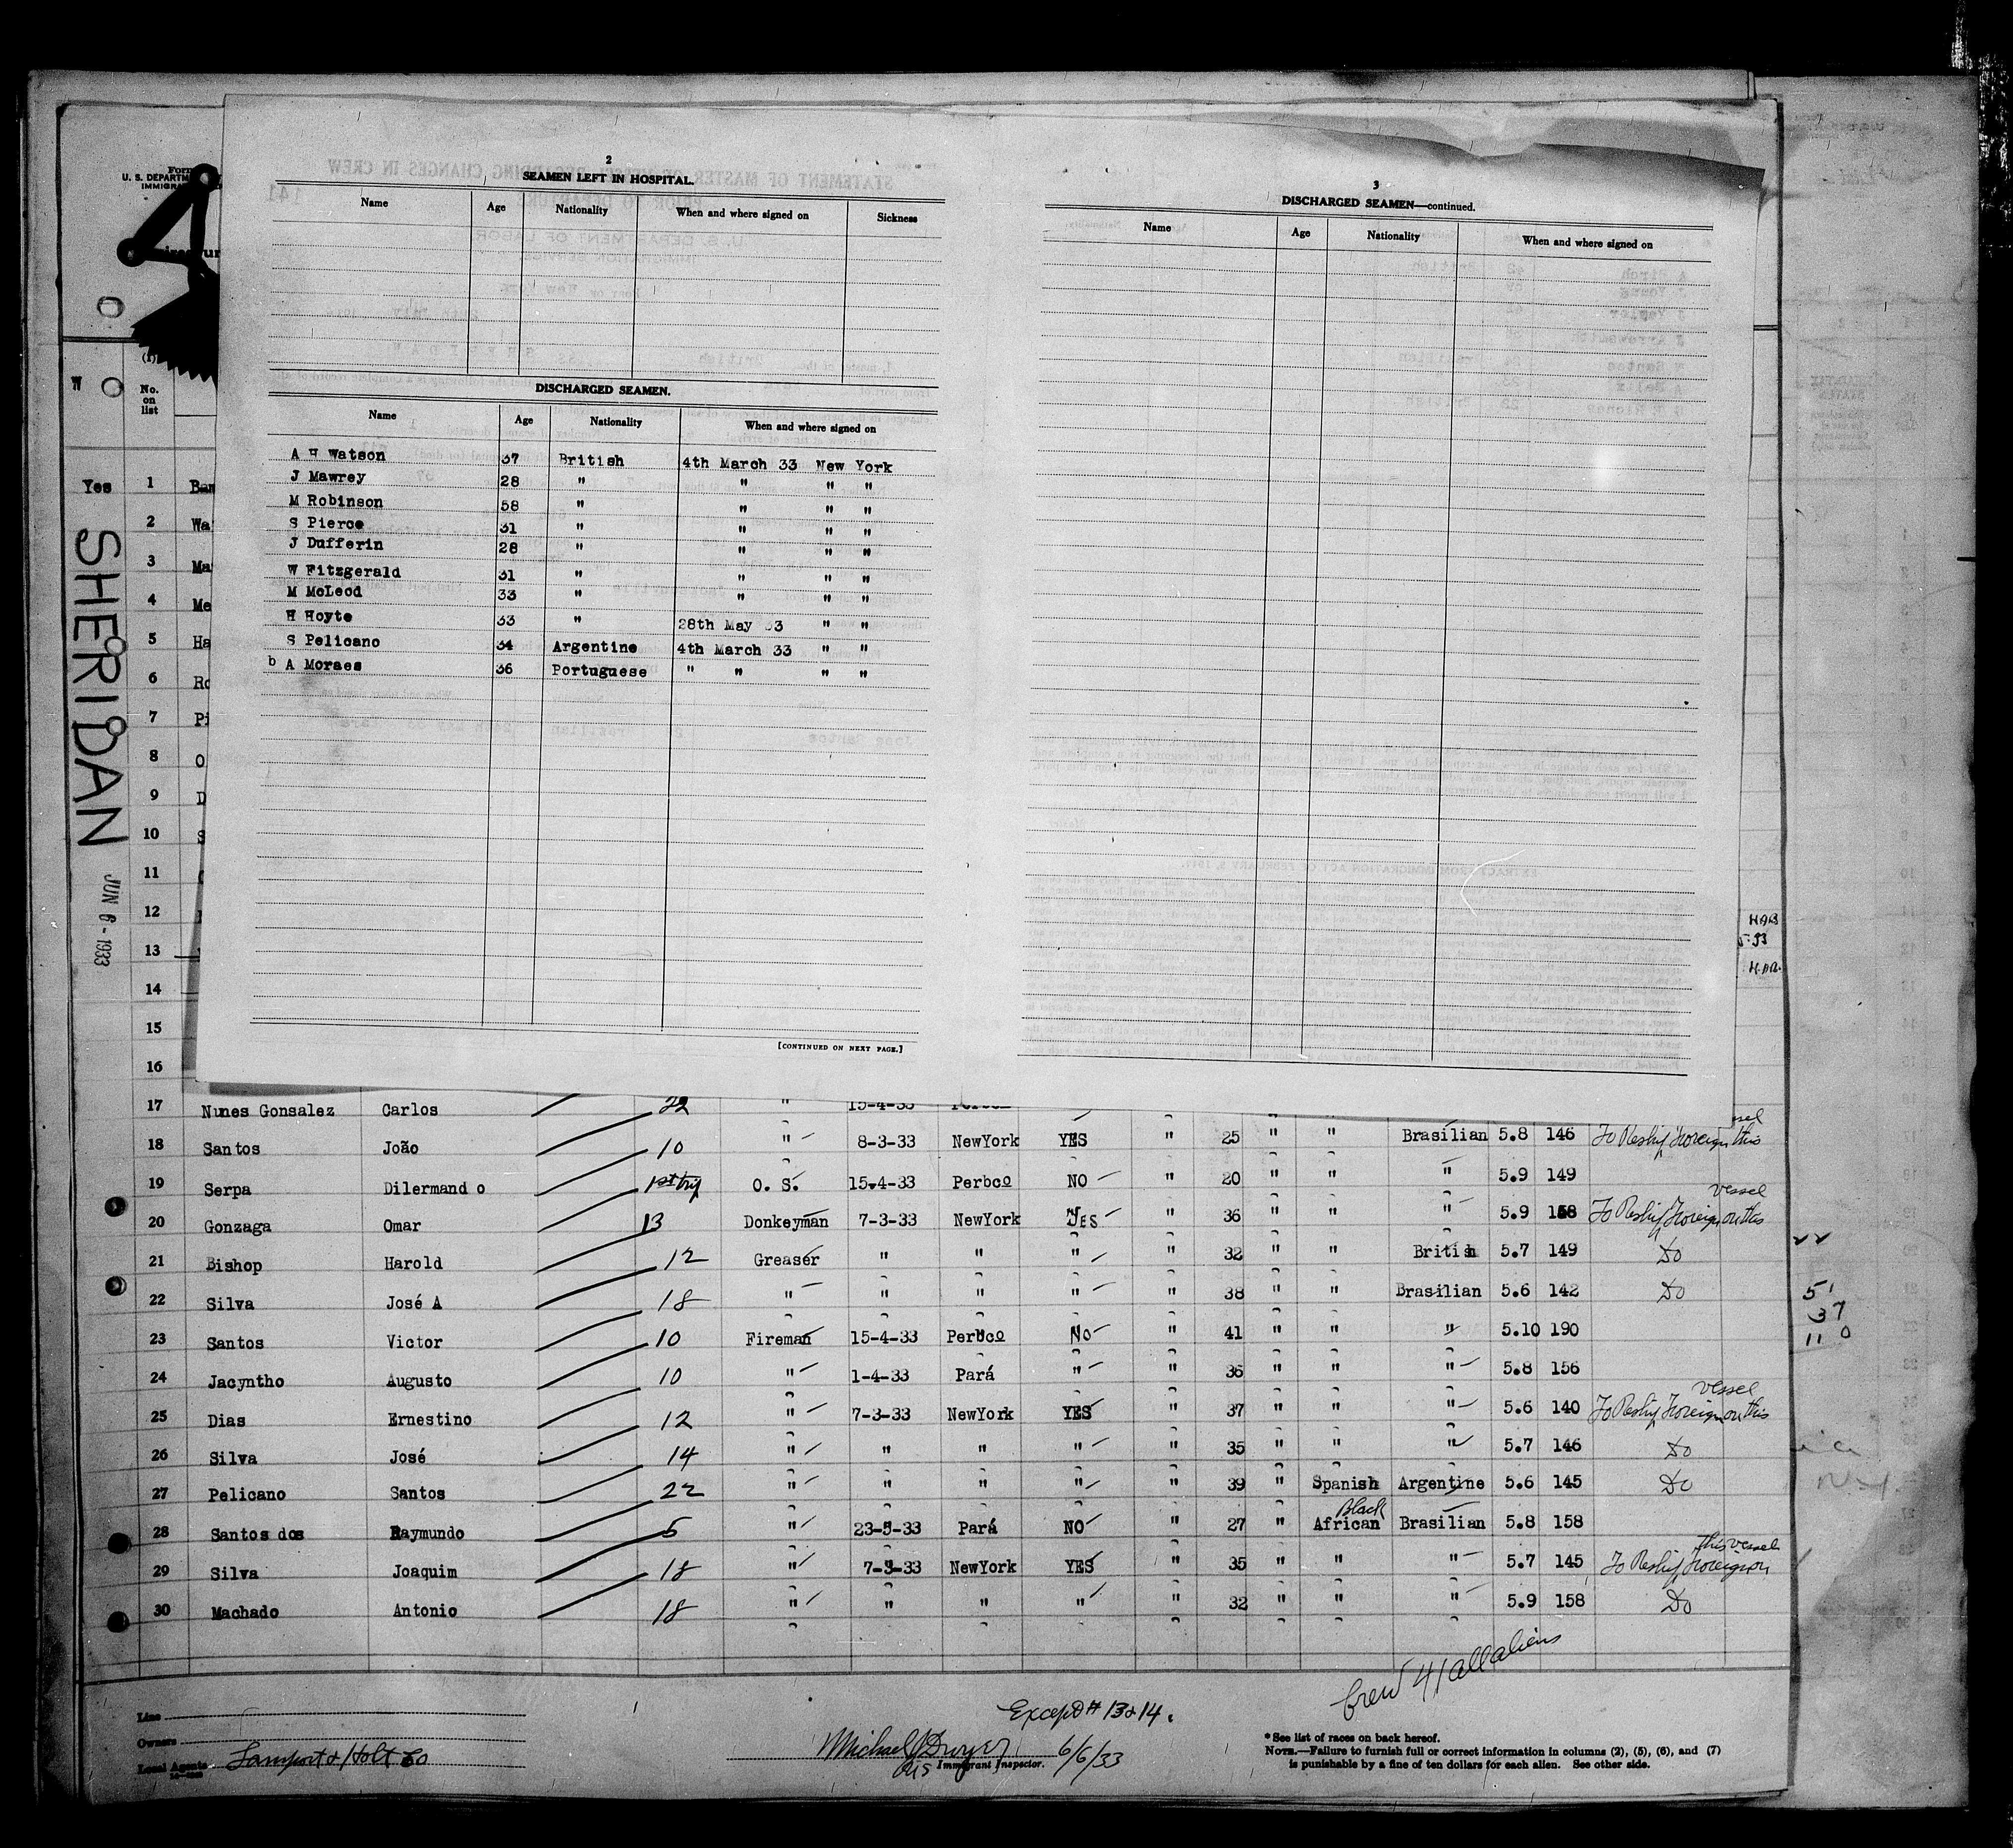 Form
U. S. DEPARTM
IMMIGRA
W
No.
on
list
SHERIDAN
JUN 6 - 1933
2
SEAMEN LEFT IN HOSPITAL.
Name Age Nationality When and where signed on Sickness
DISCHARGED SEAMEN.
Name Age Nationality When and where signed on
A H Watson 37 British 4th March 33 New York
J Mawrey 28 " " " "
M Robinson 58 " " " "
S Pierce 31 " " " "
J Dufferin 28 " " " "
W Fitzgerald 31 " " " "
M McLeod 33 " " " "
H Hoyte 33 " 28th May 33 " "
S Pelicano 34 Argentine 4th March 33 " "
b A Moraes 36 Portuguese " " " "
[CONTINUED ON NEXT PAGE.]
3
DISCHARGED SEAMEN—continued.
Name Age Nationality When and where signed on
Yes 1 Ban
2 Wa
3 Ma
4 Me
5 Ha
6 Ro
7 Pi
8 O
9 D
10 S
11
12
13
14
15
16
17 Nunes Gonsalez Carlos 22 " 15-4-33
18 Santos João 10 " 8-3-33 NewYork YES " 25 " " Brasilian 5.8 146 To Reship Foreign this
19 Serpa Dilermand o 1st trip O. S. 15-4-33 Perbco NO " 20 " " " 5.9 149
vessel
20 Gonzaga Omar 13 Donkeyman 7-3-33 NewYork YES " 36 " " " 5.9 158 To Reship Foreign on this
21 Bishop Harold 12 Greaser " " " " 32 " " British 5.7 149 Do
22 Silva José A 18 " " " " " 38 " " Brasilian 5.6 142 Do
23 Santos Victor 10 Fireman 15-4-33 Perbco No " 41 " " " 5.10 190
24 Jacyntho Augusto 10 " 1-4-33 Pará " " 36 " " " 5.8 156
vessel
25 Dias Ernestino 12 " 7-3-33 NewYork YES " 37 " " " 5.6 140 To Reship Foreign on this
26 Silva José 14 " " " " " 35 " " " 5.7 146 Do
27 Pelicano Santos 22 " " " " " 39 " Spanish Argentine 5.6 145 Do
Black
28 Santos dos Raymundo 5 " 23-5-33 Pará NO " 27 " African Brasilian 5.8 158
this vessel
29 Silva Joaquim 18 " 7-3-33 NewYork YES " 35 " " " 5.7 145 To Reship Foreign on
30 Machado Antonio 18 " " " " " 32 " " " 5.9 158 Do
5
37
11 0
Crew 41 all aliens
Except # 13 & 14.
Line
Owners
Local Agents Lamport & Holt Co
Michael J Dwyer 6/6/33
Immigrant Inspector.
* See list of races on back hereof.
NOTE.—Failure to furnish full or correct information in columns (2), (5), (6), and (7)
is punishable by a fine of ten dollars for each alien. See other side.